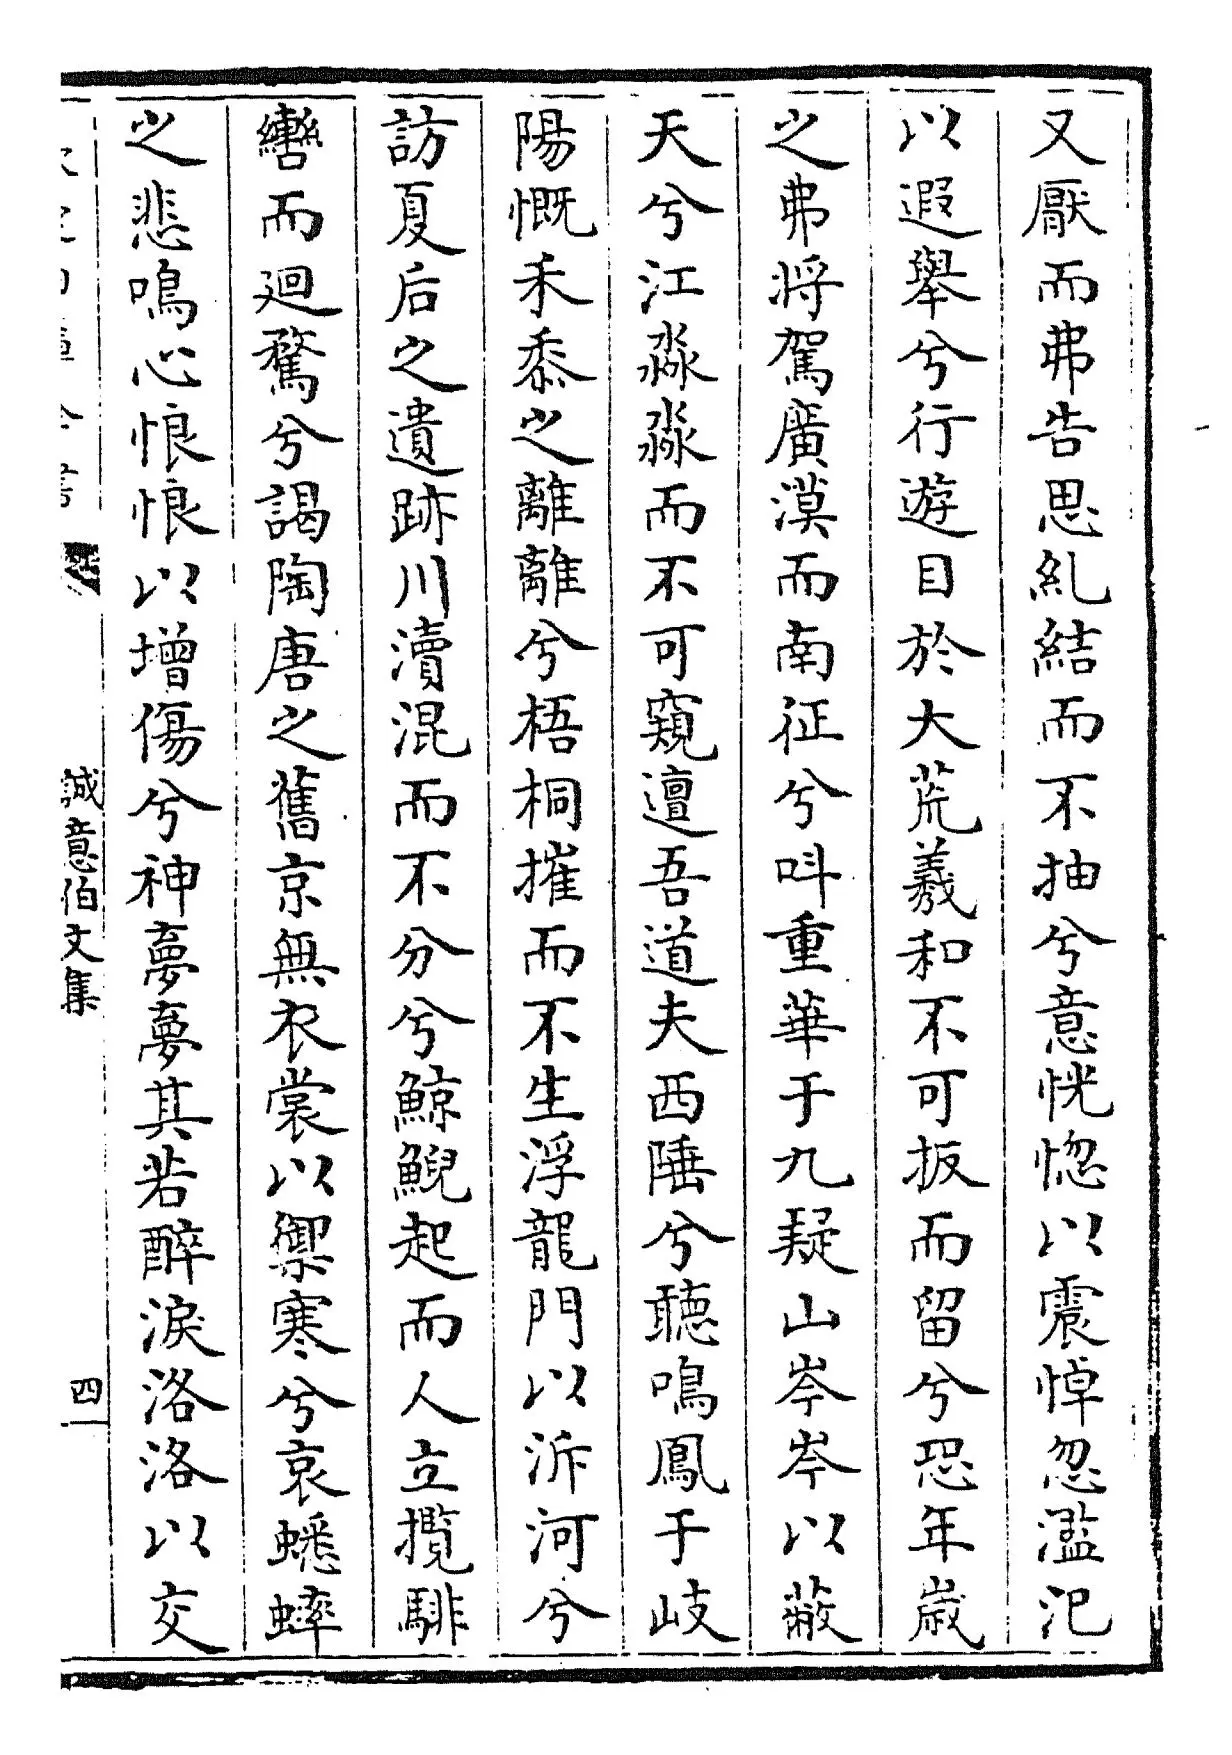 又厭而弗告思糺結而不抽兮意恍惚以震悼忽濫氾
以遐舉兮行遊目於大荒羲和不可扳而留兮恐年歲
之弗將駕廣漠而南征兮叫重華于九疑山岑岑以蔽
天兮江淼淼而不可窺邅吾道夫西陲兮聽鳴鳳于岐
陽慨禾黍之離離兮梧桐摧而不生浮龍門以泝河兮
訪夏后之遺跡川瀆混而不分兮鯨鯢起而人立攬騑
轡而廻騖兮謁陶唐之舊京無衣裳以禦寒兮哀蟋蟀
之悲鳴心悢悢以增傷兮神夢夢其若醉淚洛洛以交
誠意伯文集
四